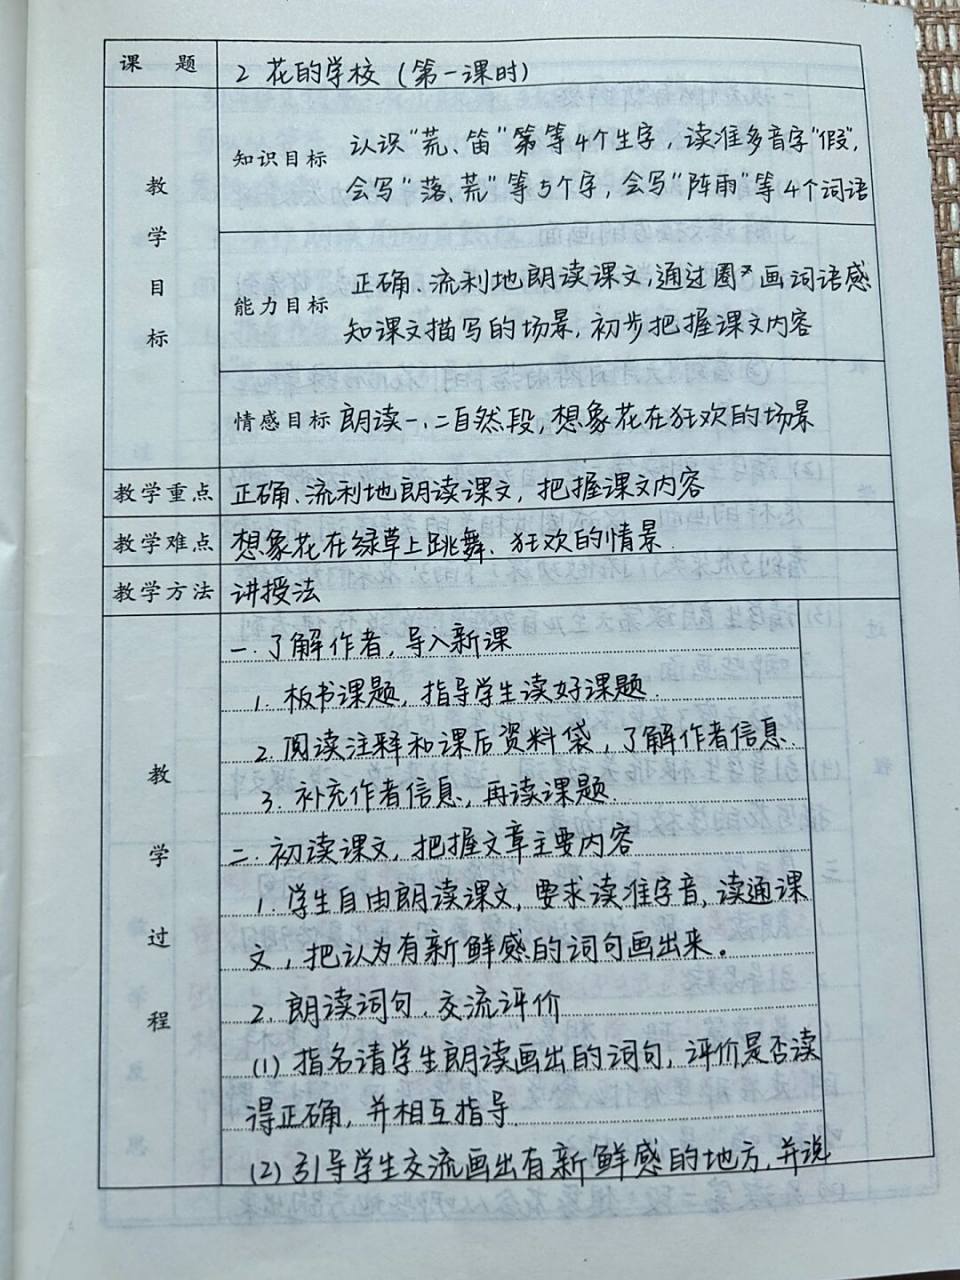 课 题 2 花的学校（第一课时）
教学目标
知识目标 认识"荒、笛"第等4个生字，读准多音字"假"，
会写"落、荒"等5个字，会写"阵雨"等4个词语
能力目标 正确、流利地朗读课文，通过圈画词语感
知课文描写的场景，初步把握课文内容
情感目标 朗读一、二自然段，想象花在狂欢的场景
教学重点 正确、流利地朗读课文，把握课文内容
教学难点 想象花在绿草上跳舞、狂欢的情景.
教学方法 讲授法
教学过程
一.了解作者，导入新课
1. 板书课题，指导学生读好课题.
2. 阅读注释和课后资料袋，了解作者信息.
3. 补充作者信息，再读课题.
二.初读课文，把握文章主要内容
1. 学生自由朗读课文，要求读准字音，读通课
文，把认为有新鲜感的词句画出来。
2. 朗读词句，交流评价
(1) 指名请学生朗读画出的词句，评价是否读
得正确，并相互指导.
(2) 引导学生交流画出有新鲜感的地方，并说